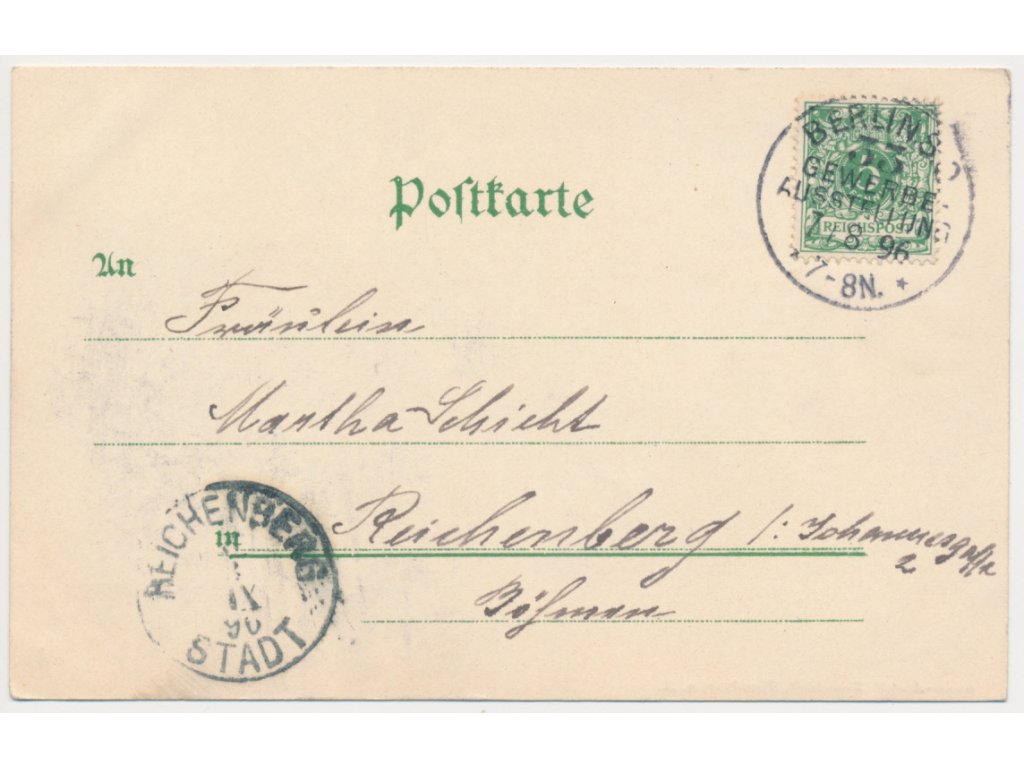 Postkarte
BERLIN S.
5
GEWERBE-
AUSSTELLUNG
REICHSPOST
7.8 96
* 7-8N. *
An
Fräulein
Martha Schicht
in Reichenberg /: Johannesgasse
2
Böhmen
REICHENBERG
IX
96
STADT